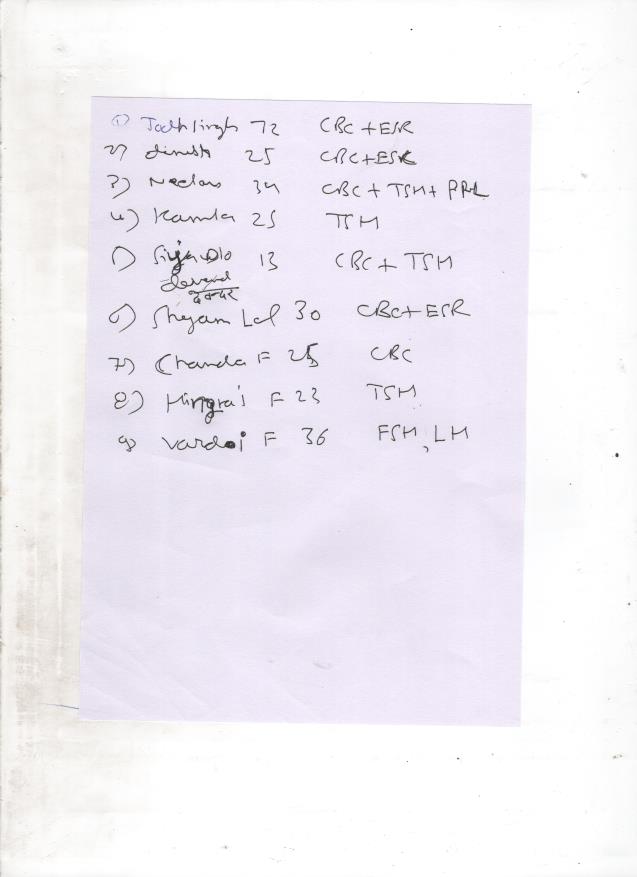 1) Jodhsingh 72 CBC + ESR
2) dinesh 25 CBC+ESR
3) 34 CBC + TSH + PRL
4) Kamla 25 TSH
5) D/o 13 CBC + TSH
6) Shyam Lal 30 CBC+ ESR
7) Chanda F 25 CBC
8) F 23 TSH
9) Vardoi F 36 FSH, LH